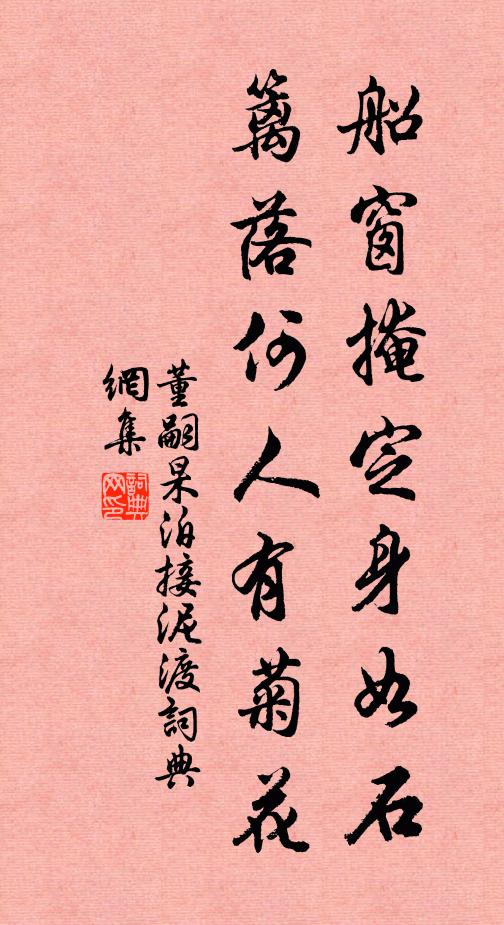 船窗掩定身如石
籬落何人有菊花
董嗣杲泊接泥渡詞典
網集
詞典
网印